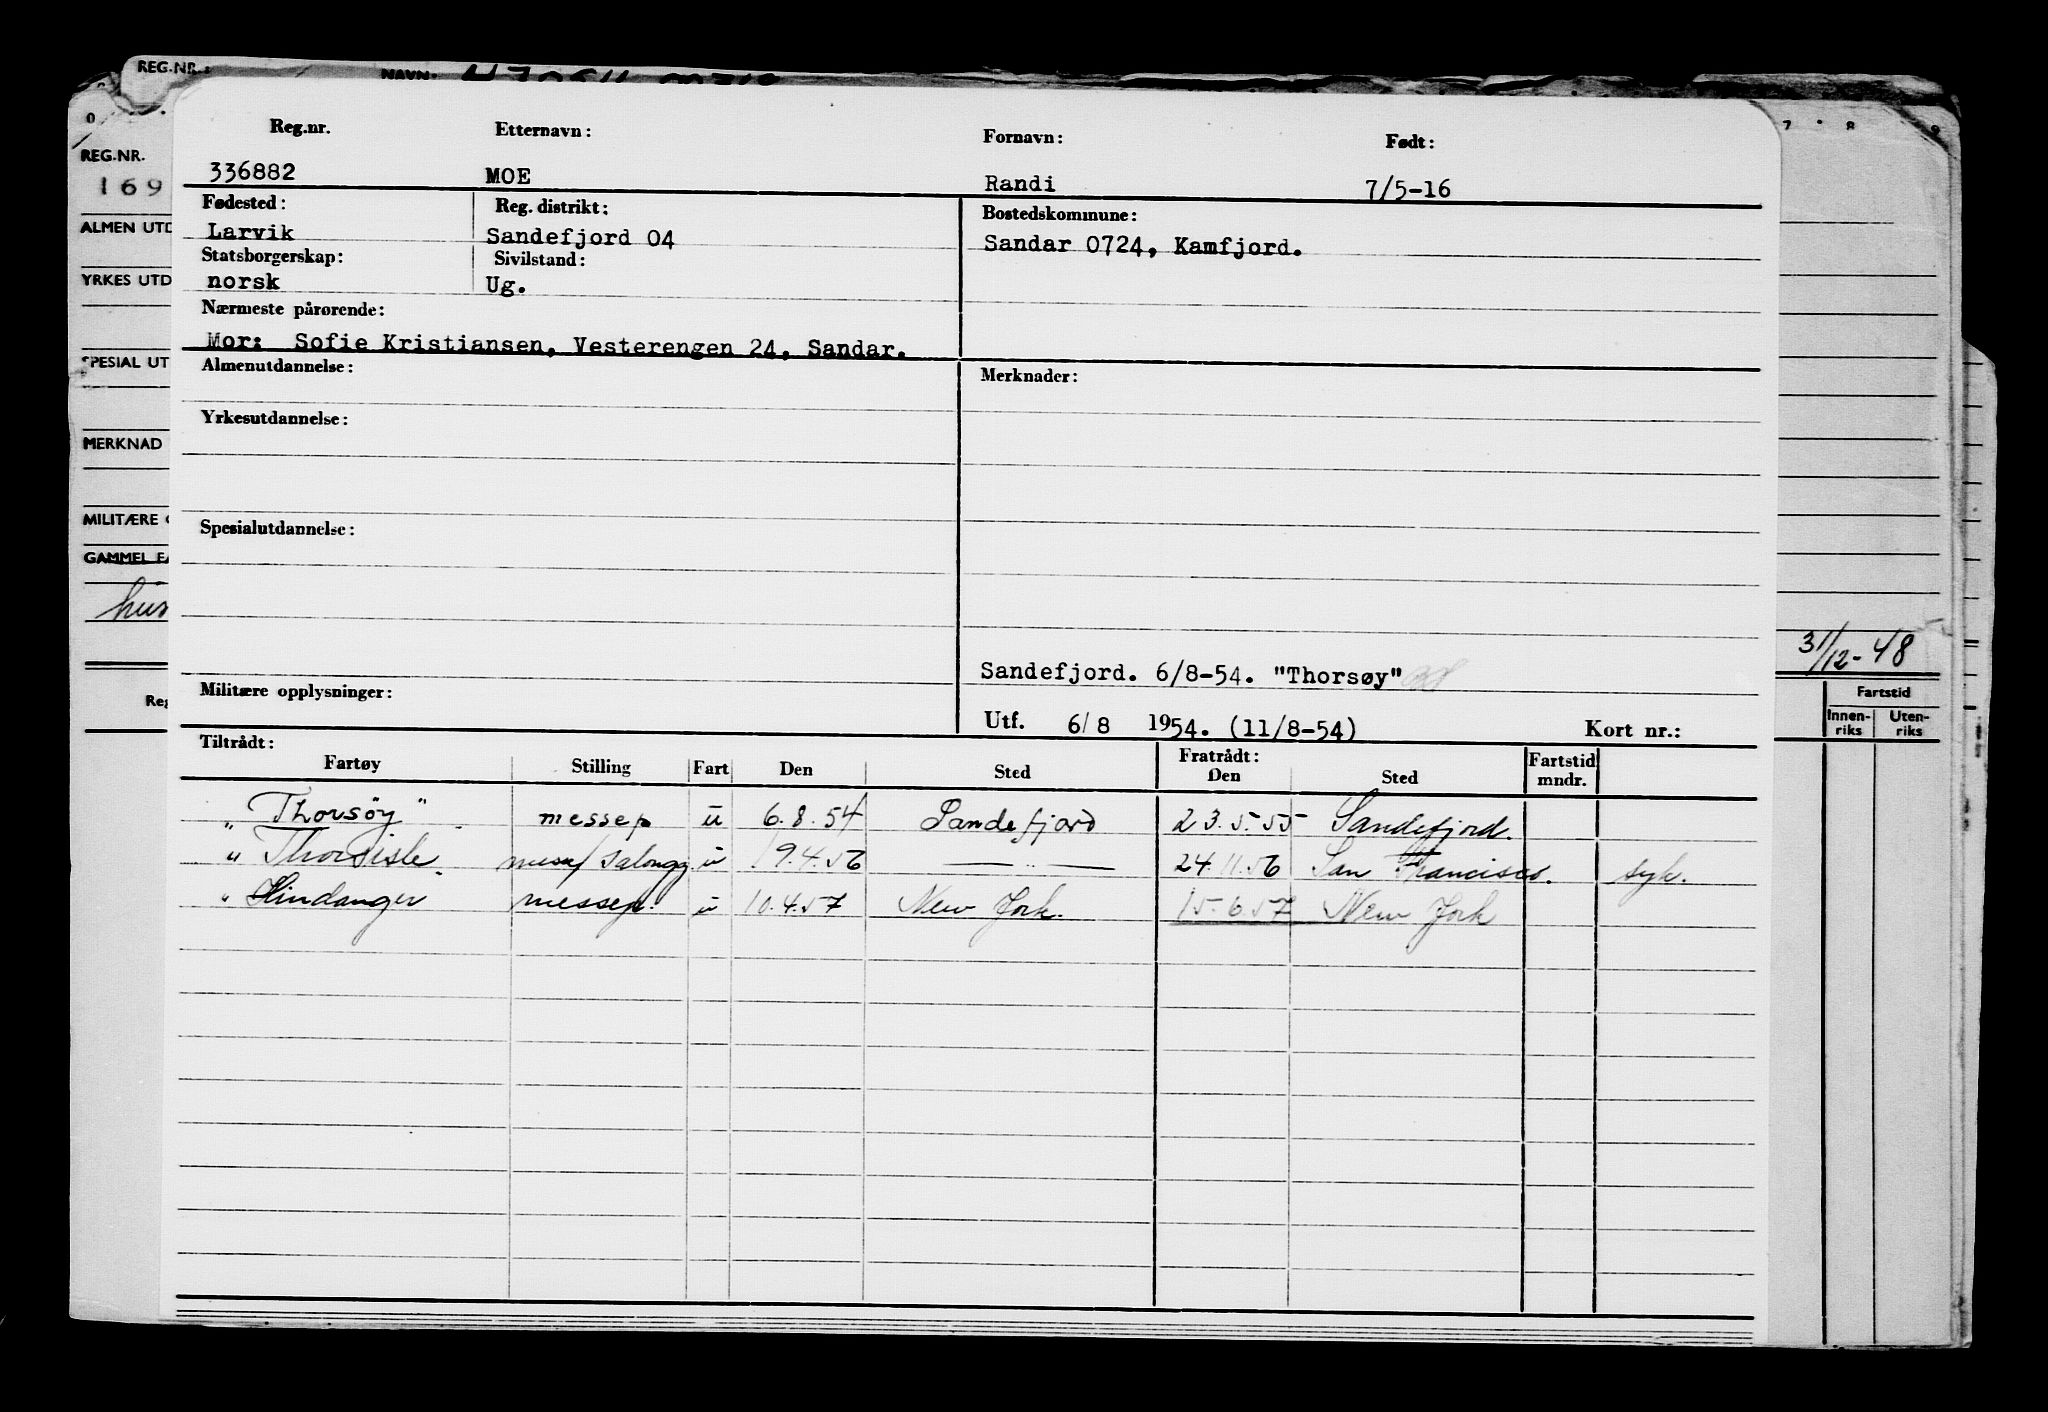 REG.NR.: NAVN:
REG.NR.
169
ALMEN UTD
YRKES UTD
SPESIAL UT
MERKNAD
MILITÆRE
GAMMEL
Reg
Reg.nr. Etternavn: Fornavn: Født:
336882 MOE Randi 7/5-16
Fødested: Reg. distrikt: Bostedskommune:
Larvik Sandefjord 04 Sandar 0724, Kamfjord.
Statsborgerskap: Sivilstand:
norsk Ug.
Nærmeste pårørende:
Mor: Sofie Kristiansen, Vesterengen 24, Sandar.
Almenutdannelse: Merknader:
Yrkesutdannelse:
Spesialutdannelse:
Sandefjord. 6/8-54. "Thorsøy"
Militære opplysninger:
Utf. 6/8 1954. (11/8-54) Kort nr.:
Tiltrådt: Fratrådt: Fartstid mndr.
Fartøy Stilling Fart Den Sted Den Sted
" Thorsøy " messep u 6.8.54 Sandefjord 23.5.55 Sandefjord.
" Thorsisle messp/salongp u 19.4.56 — " — 24.11.56 San Francisco. syk.
" Hindanger messep. u 10.4.57 New York. 15.6.57 New York
7 8 9
31/12-48
Fartstid
Innen-riks Uten-riks